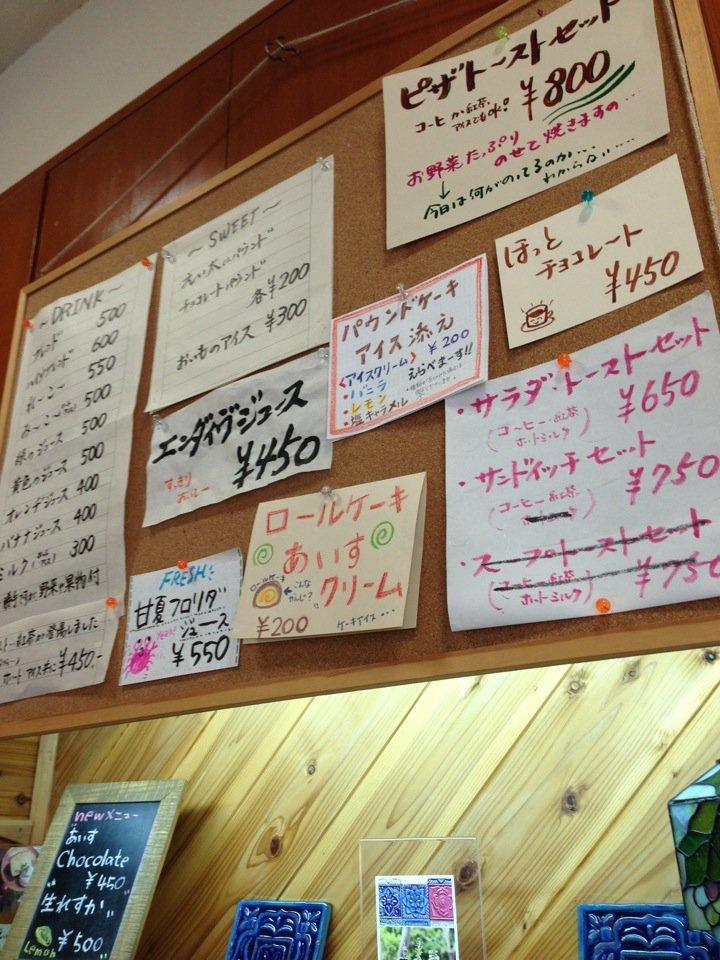 ピザトーストセット
コーヒーか紅茶、
アイスでもok!
¥800
お野菜たっぷり
のせて焼きますの…
↓
今日は何がのってるのか…
わからない……
ほっと
チョコレート
¥450
~SWEET~
チョコレートパウンド
各¥200
おいものアイス ¥300
パウンドケーキ
アイス添え
<アイスクリーム> ¥200
・バニラ
・レモン
・塩キャラメル
えらべまーす!!
エンダイヴジュース
すっきり
¥450
~DRINK~
ブレンド 500
600
550
500
緑のジュース 500
黄色のジュース 500
オレンヂジュース 400
バナナジュース 400
ミルク 300
登場しました
ホットアイス共に¥450.-
FRESH!
甘夏フロリダ
ジュース
¥550
ロールケーキ
あいす
クリーム
ロールケーキ
こんな
かんじ?
¥200
ケーキアイス…
・サラダ・トーストセット
(コーヒー・紅茶
ホットミルク)
¥650
・サンドイッチセット
(コーヒー・紅茶)
¥750
・スープ・トーストセット
(コーヒー・紅茶
ホットミルク)
¥750
newメニュー
あいす
Chocolate
¥450
"生れすか"
Lemon ¥500